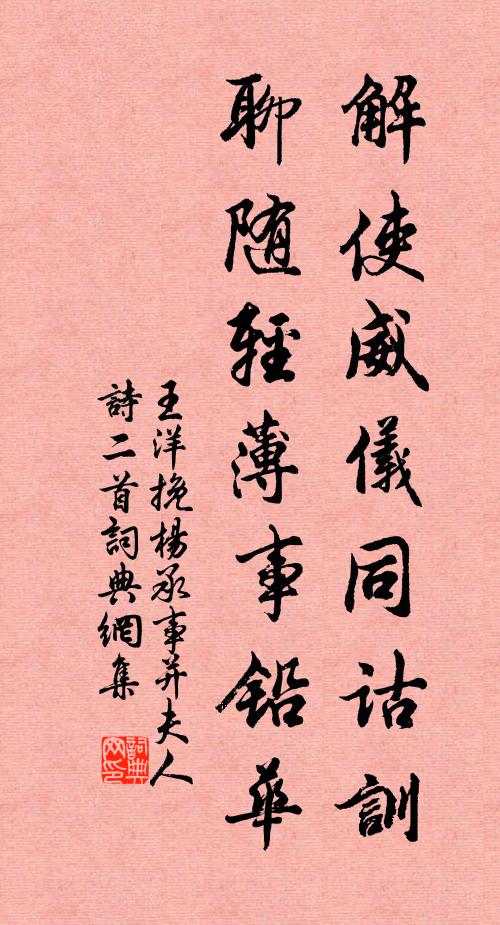 解使威儀同詁訓
聊随輕薄事鉛華
王洋挽楊承事并夫人
詩二首詞典網集
詞典网印